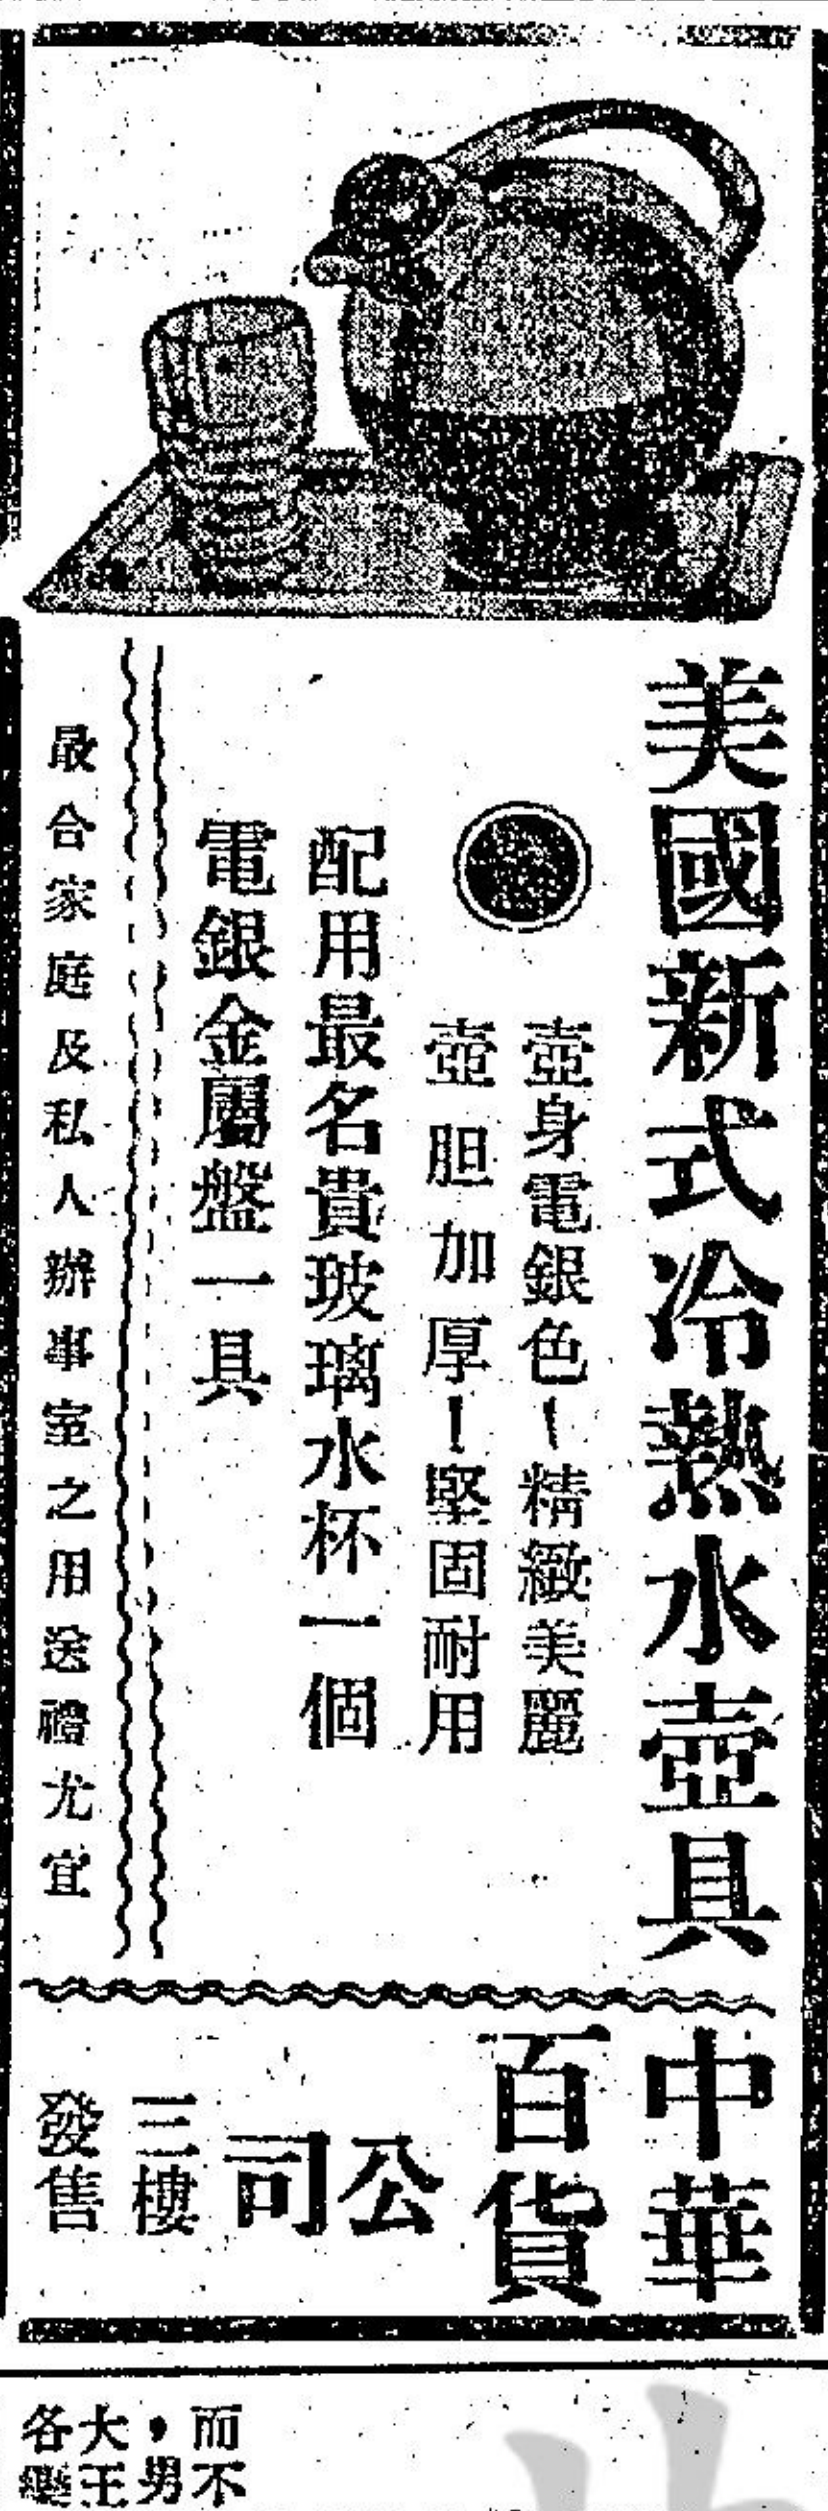 美國新式冷熱水壺具
壺身電銀色—精緻美麗
壺胆加厚—堅固耐用
配用最名貴玻璃水杯一個
電銀金屬盤一具
最合家庭及私人辦事室之用送禮尤宜
中華
百貨
公司
三樓
發售
而不
，男
大王
各